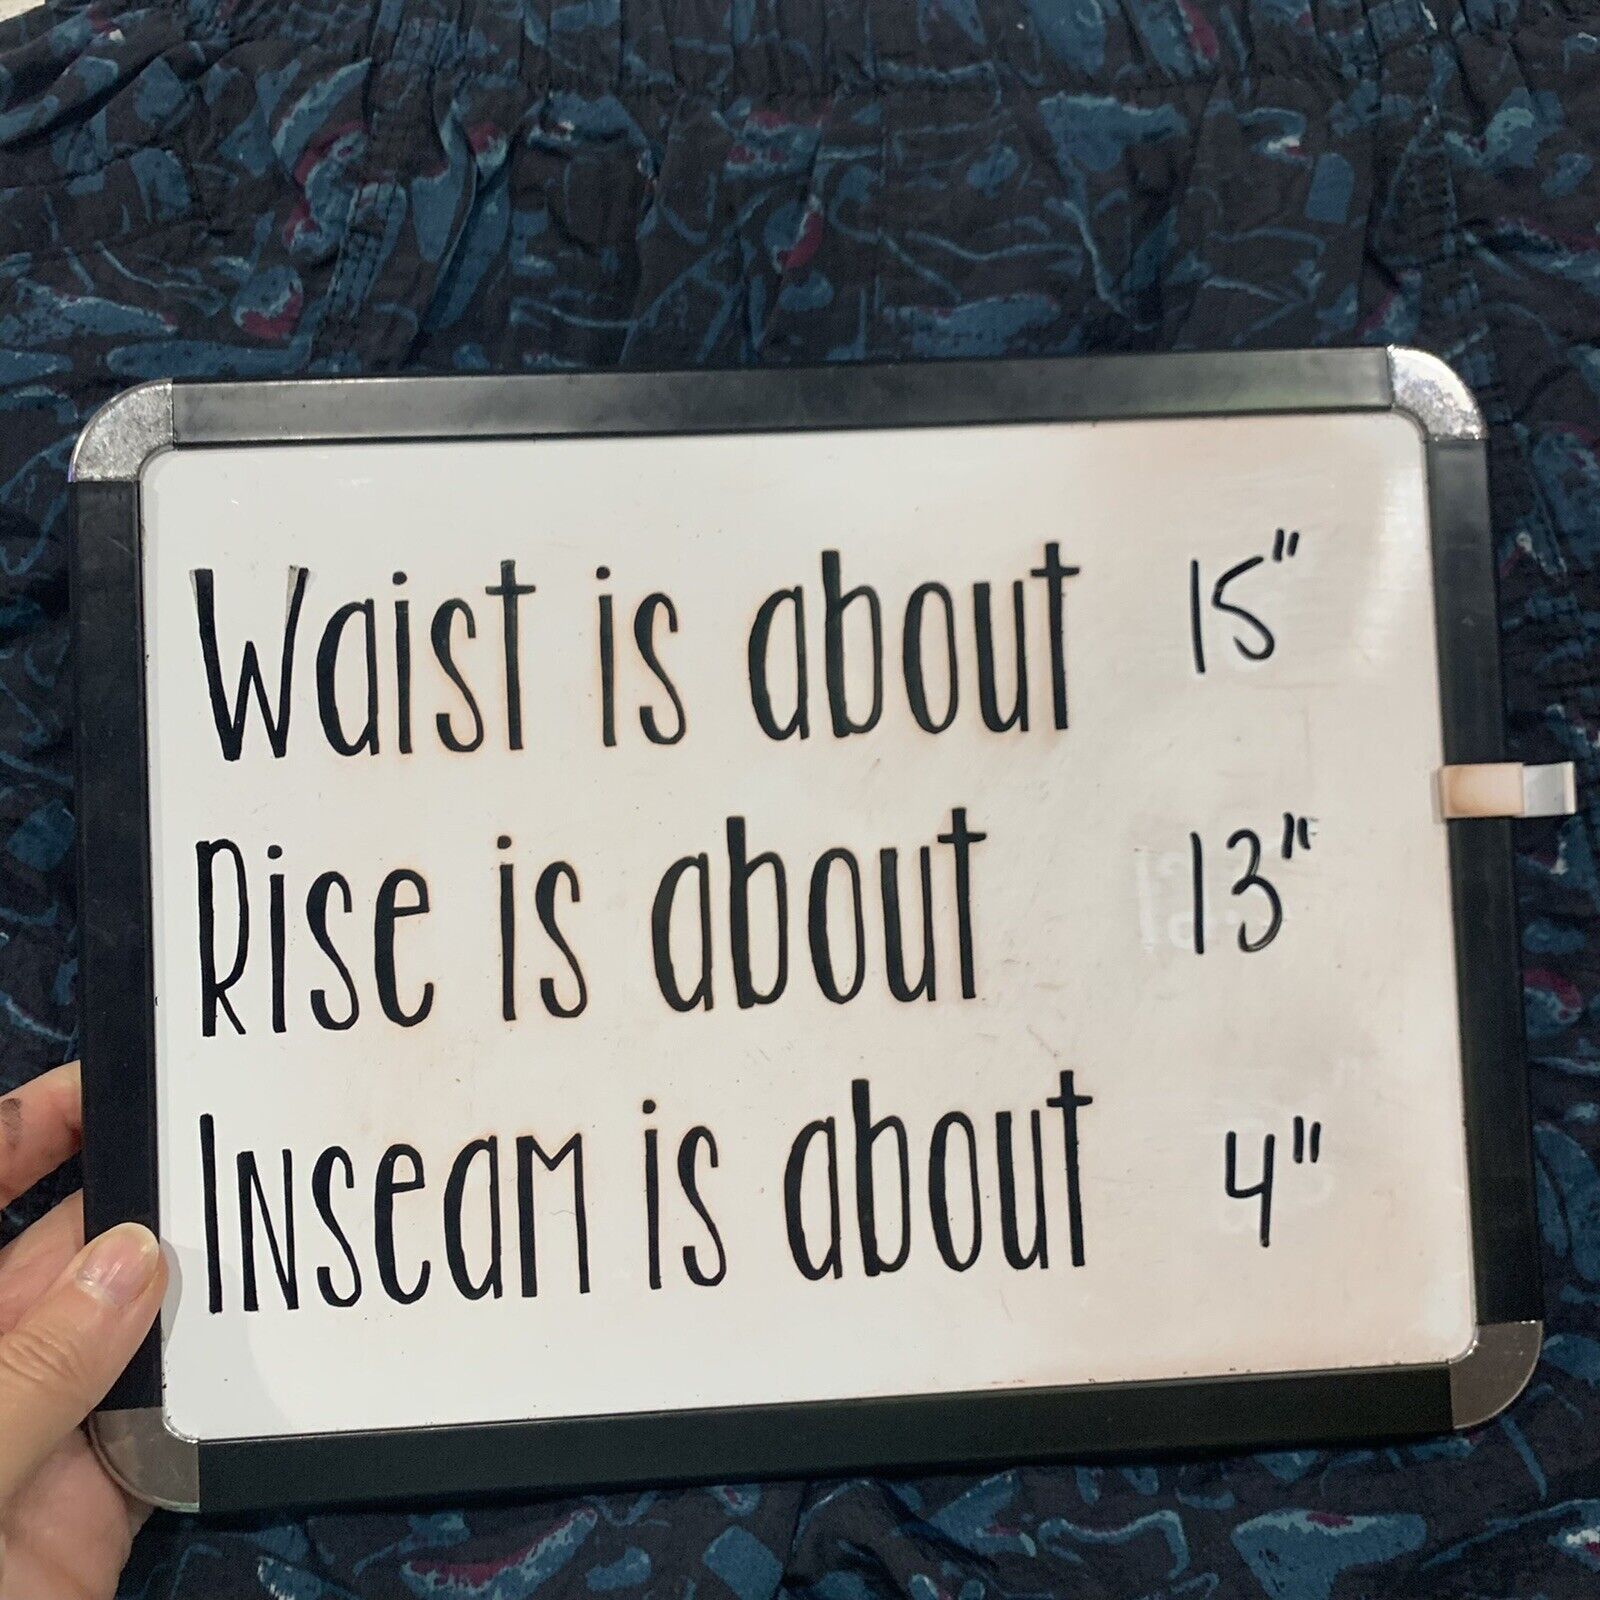 Waist is about 15"
Rise is about 13"
Inseam is about 4"